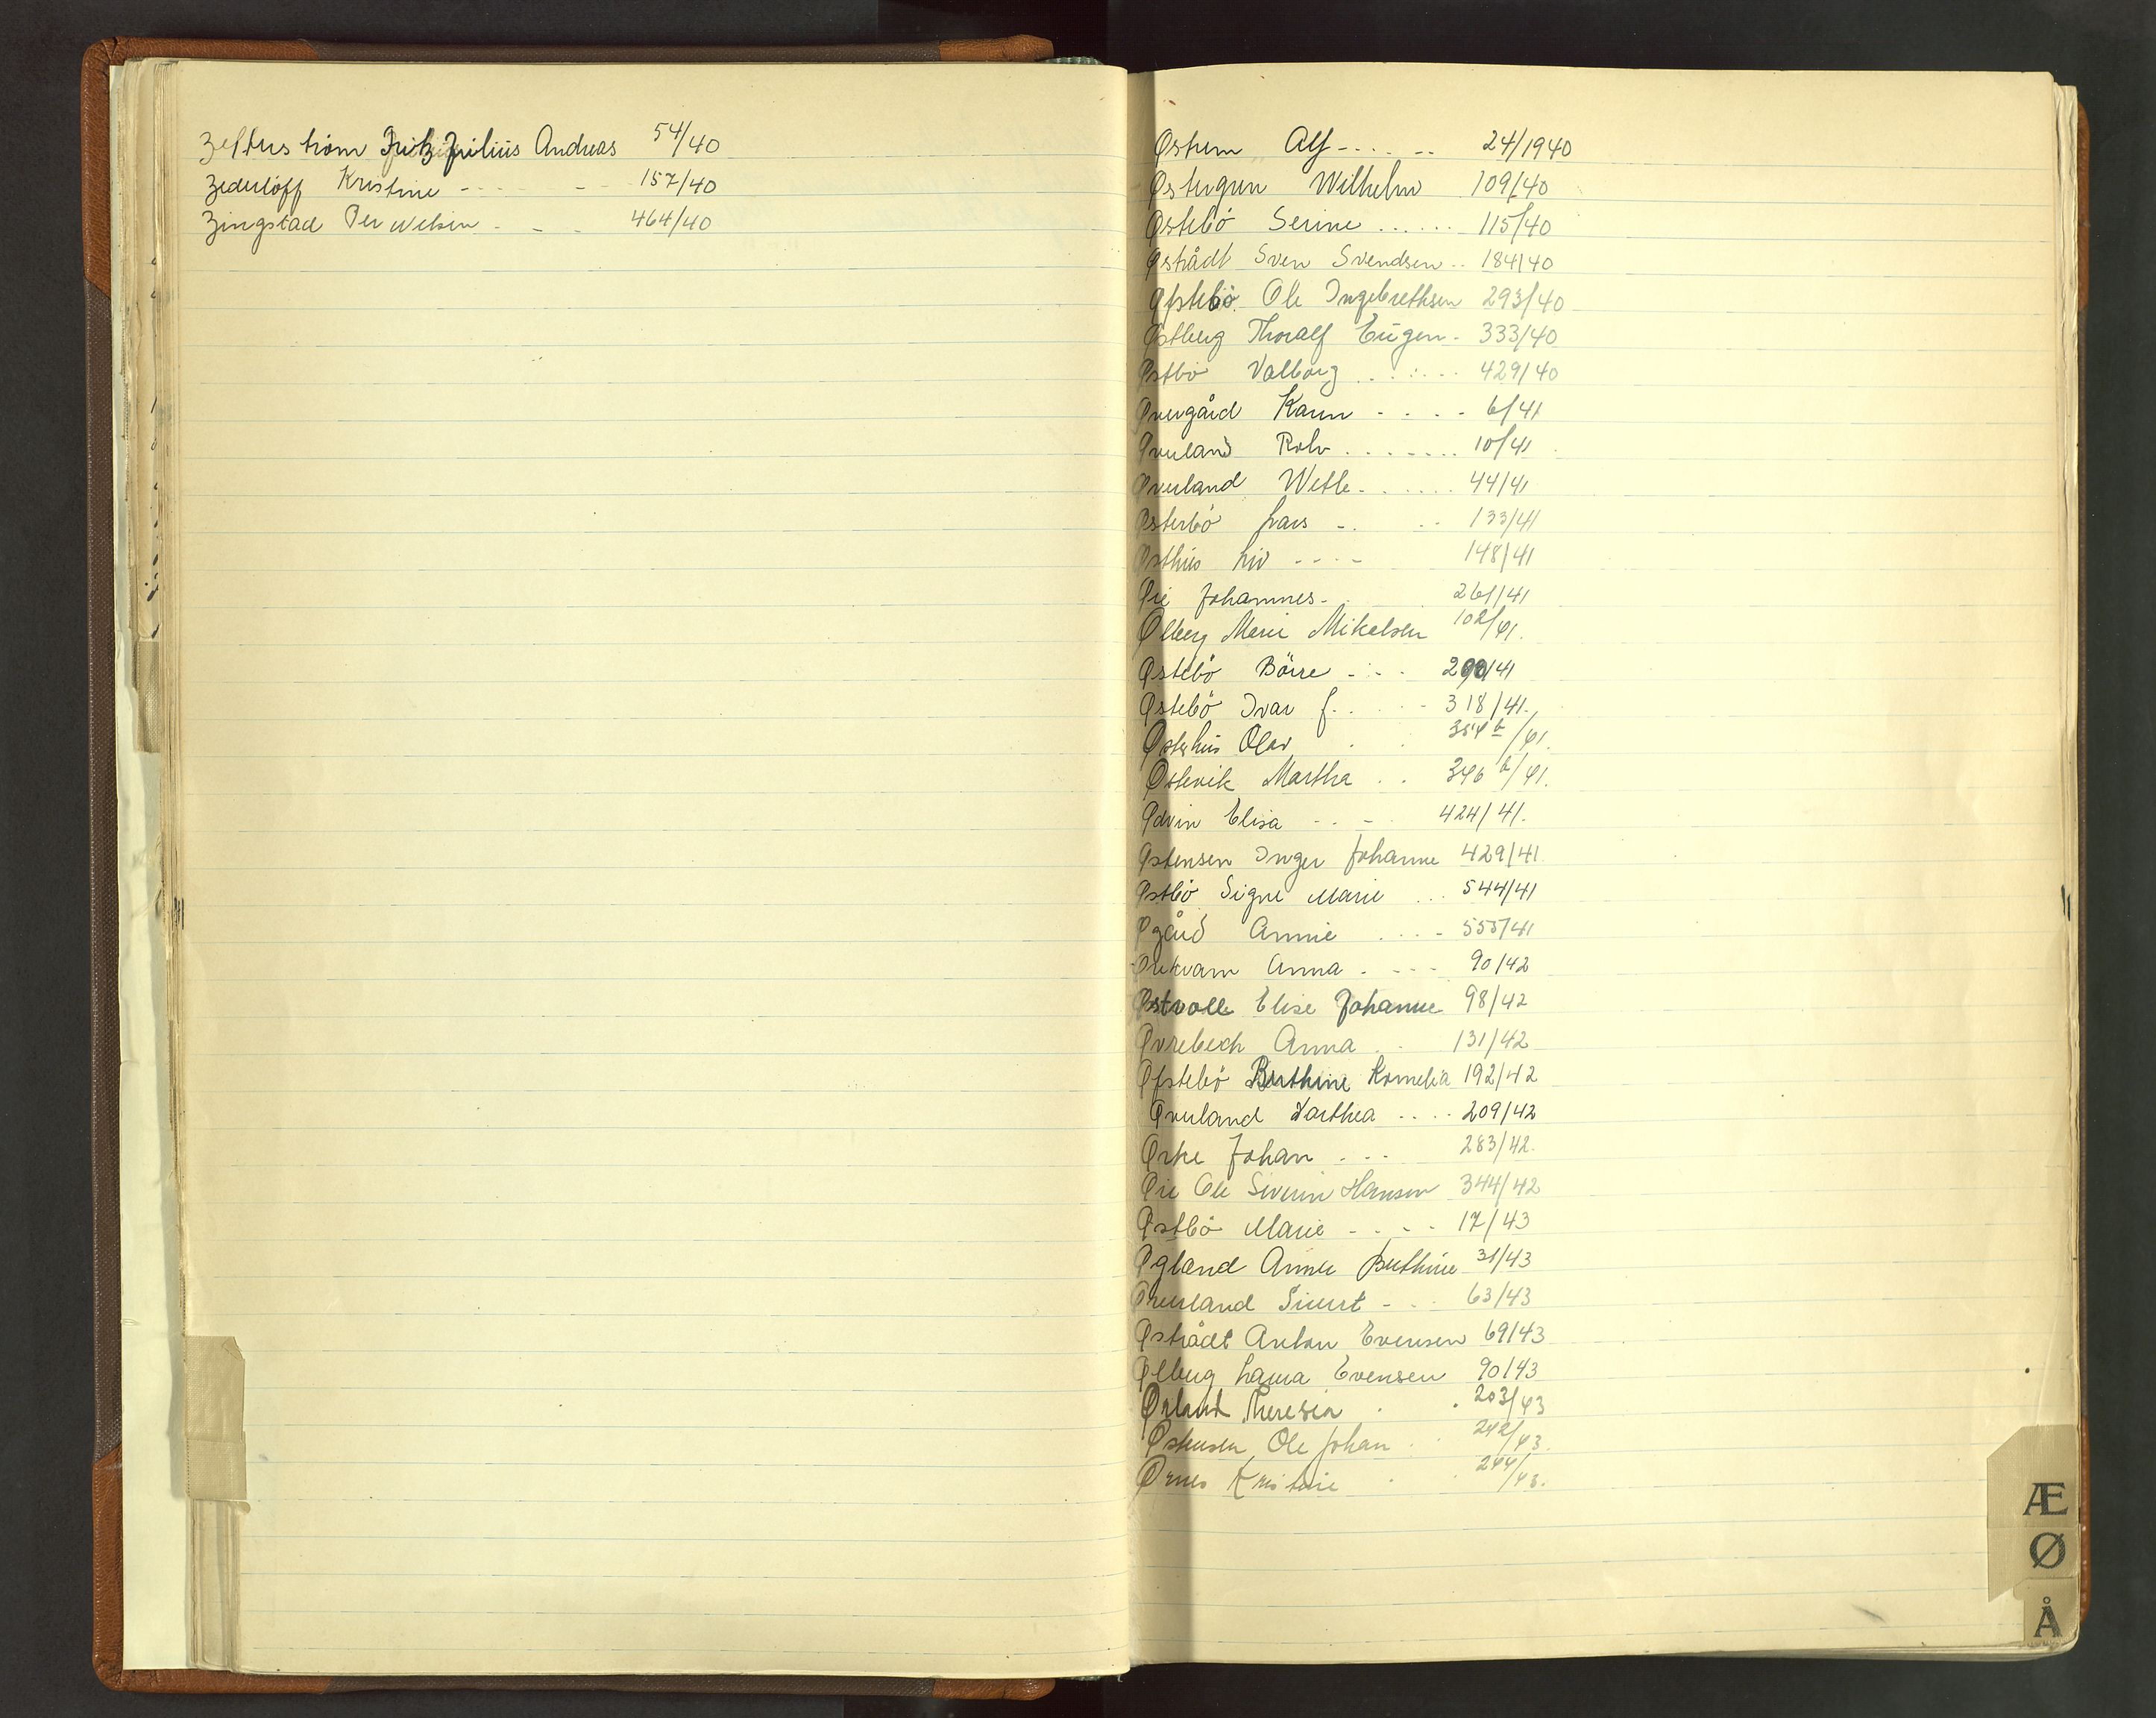 Zetterström Fritz Julius Andreas 54/40
Zederlöff Kristine - - - - - 157/40
Zingstad Per Nelsin - - - 464/40
Østrem Alf - . . . - - 24/1940
Østergren Wilhelm 109/40
Østebö Serine . . . . . . 115/40
Østrådt Sven Svendsen . . 184/40
Øfstebö Ole Ingebrethsen 293/40
Østberg Thoralf Eugen - 333/40
Østbö Valborg . . . . . . 429/40
Øvregård Karen - . . . - 6/41
Øverland Rolv . . . . . . . . 10/41
Øverland Wetle - . . . . . 44/41
Østerbö Lars - . . - 133/41
Østhus Liv - - - - 148/41
Øie Johannes - . 261/41
Ølberg Marie Mikalsen 102/41.
Østebö Börre - . - . 290/41
Østebö Ivar J. . . . - 318/41.
Østerhus Olav . . 354 b/41.
Østevik Martha . . 346 b/41.
Ødvin Elisa - - - 424/41.
Østensen Inger Johanne 429/41
Østbö Signe Marie . . . 544/41
Øgård Annie . . . - 555/41
Ørekvam Anna . - - - 90/42
Østvoll Elise Johanne 98/42
Øvrebech Anna . . 131/42
Øfstebö Berthine Kornelia 192/42
Øverland Dorthea . . . . 209/42
Ørke Johan . - - 283/42.
Øie Ole Severin Hansen 344/42
Østbö Marie - . . - 17/43
Øgland Anne Berthine 31/43
Øverland Sivert - . . 63/43
Østrådt Anton Evensen 69/43
Ølberg Laura Evensen 90/43
Ørland Theresia . . 203/43
Østensen Ole Johan . . 242/43.
Ørnes Kristine . . 244/43.
Æ
Ø
Å